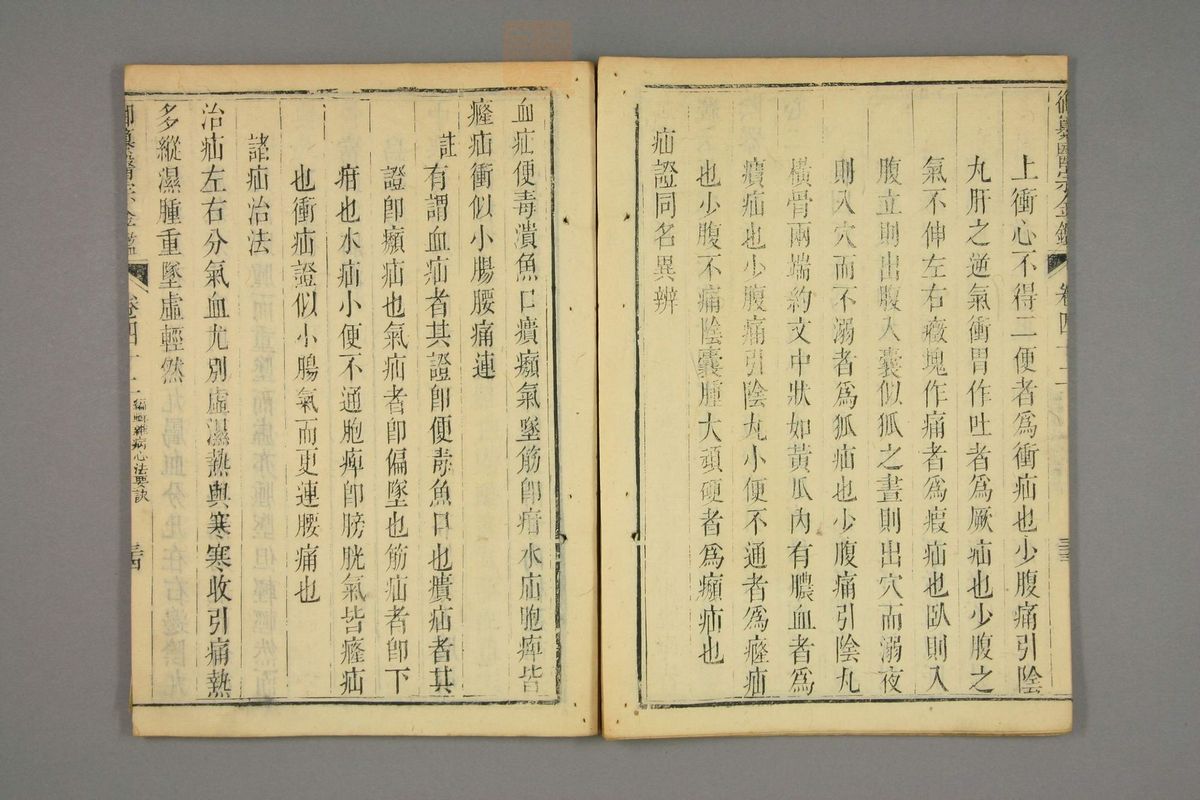 御纂醫宗金鑑 卷四十二
上衝心不得二便者爲衝疝也少腹痛引陰
丸肝之逆氣衝胃作吐者爲厥疝也少腹之
氣不伸左右癥塊作痛者爲瘕疝也臥則入
腹立則出腹入囊似狐之晝則出穴而溺夜
則入穴而不溺者爲狐疝也少腹痛引陰丸
橫骨兩端約文中狀如黃瓜內有膿血者爲
㿉疝也少腹痛引陰丸小便不通者爲癃疝
也少腹不痛陰囊腫大頑硬者爲㿗疝也
疝證同名異辨
血疝便毒潰魚口㿉㿗氣墜筋卽疳水疝胞痺皆
癃疝衝似小腸腰痛連
註有謂血疝者其證卽便毒魚口也㿉疝者其
證卽㿗疝也氣疝者卽偏墜也筋疝者卽下
疳也水疝小便不通胞痺卽膀胱氣皆癃疝
也衝疝證似小腸氣而更連腰痛也
諸疝治法
治疝左右分氣血尤別虛濕熱與寒寒收引痛熱
多縱濕腫重墜虛輕然
御纂醫宗金鑑 卷四十二 編輯雜病心法要訣 三十四